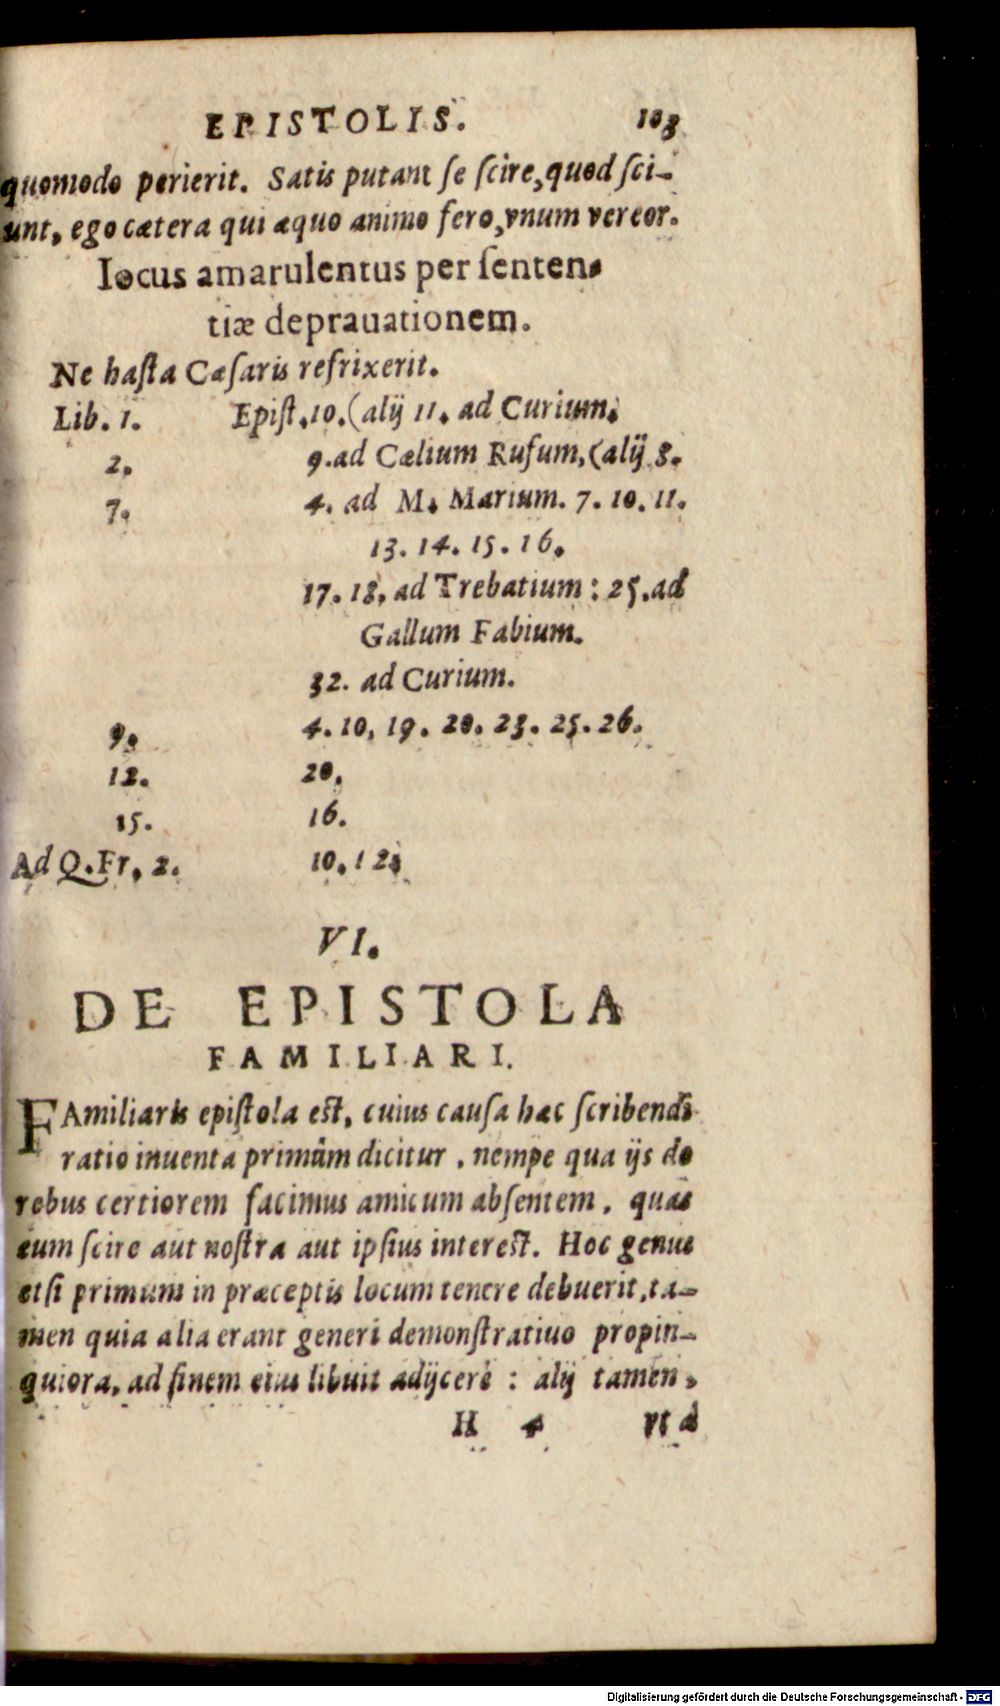 EPISTOLIS. 103
quomodo perierit. Satis putant se scire, quod sci-
unt, ego cætera qui æquo animo fero, vnum vereor.
Iocus amarulentus per senten-
tiæ deprauationem.
Ne hasta Cæsaris refrixerit.
Lib. 1. Epist. 10. (alij 11. ad Curium.
2. 9. ad Cælium Rufum, (alij 8.
7. 4. ad M. Marium. 7. 10. 11.
13. 14. 15. 16.
17. 18. ad Trebatium : 25. ad
Gallum Fabium.
32. ad Curium.
9. 4. 10, 19. 20. 23. 25. 26.
12. 20.
15. 16.
Ad Q. Fr. 2. 10. 12.
VI.
DE EPISTOLA
FAMILIARI.
FAmiliaris epistola est, cuius causa hæc scribendi
ratio inuenta primùm dicitur, nempe qua ijs de
rebus certiorem facimus amicum absentem, quas
eum scire aut nostra aut ipsius interest. Hoc genus
etsi primum in præceptis locum tenere debuerit, ta-
men quia alia erant generi demonstratiuo propin-
quiora, ad finem eius libuit adijcere : alij tamen,
H 4 vt à
Digitalisierung gefördert durch die Deutsche Forschungsgemeinschaft - DFG